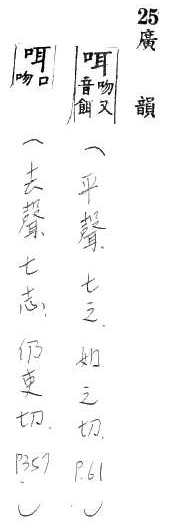 25廣韻
咡吻又音餌(平聲、七之、如之切、P.61)
咡口吻(去聲、七志、仍吏切、P.357)